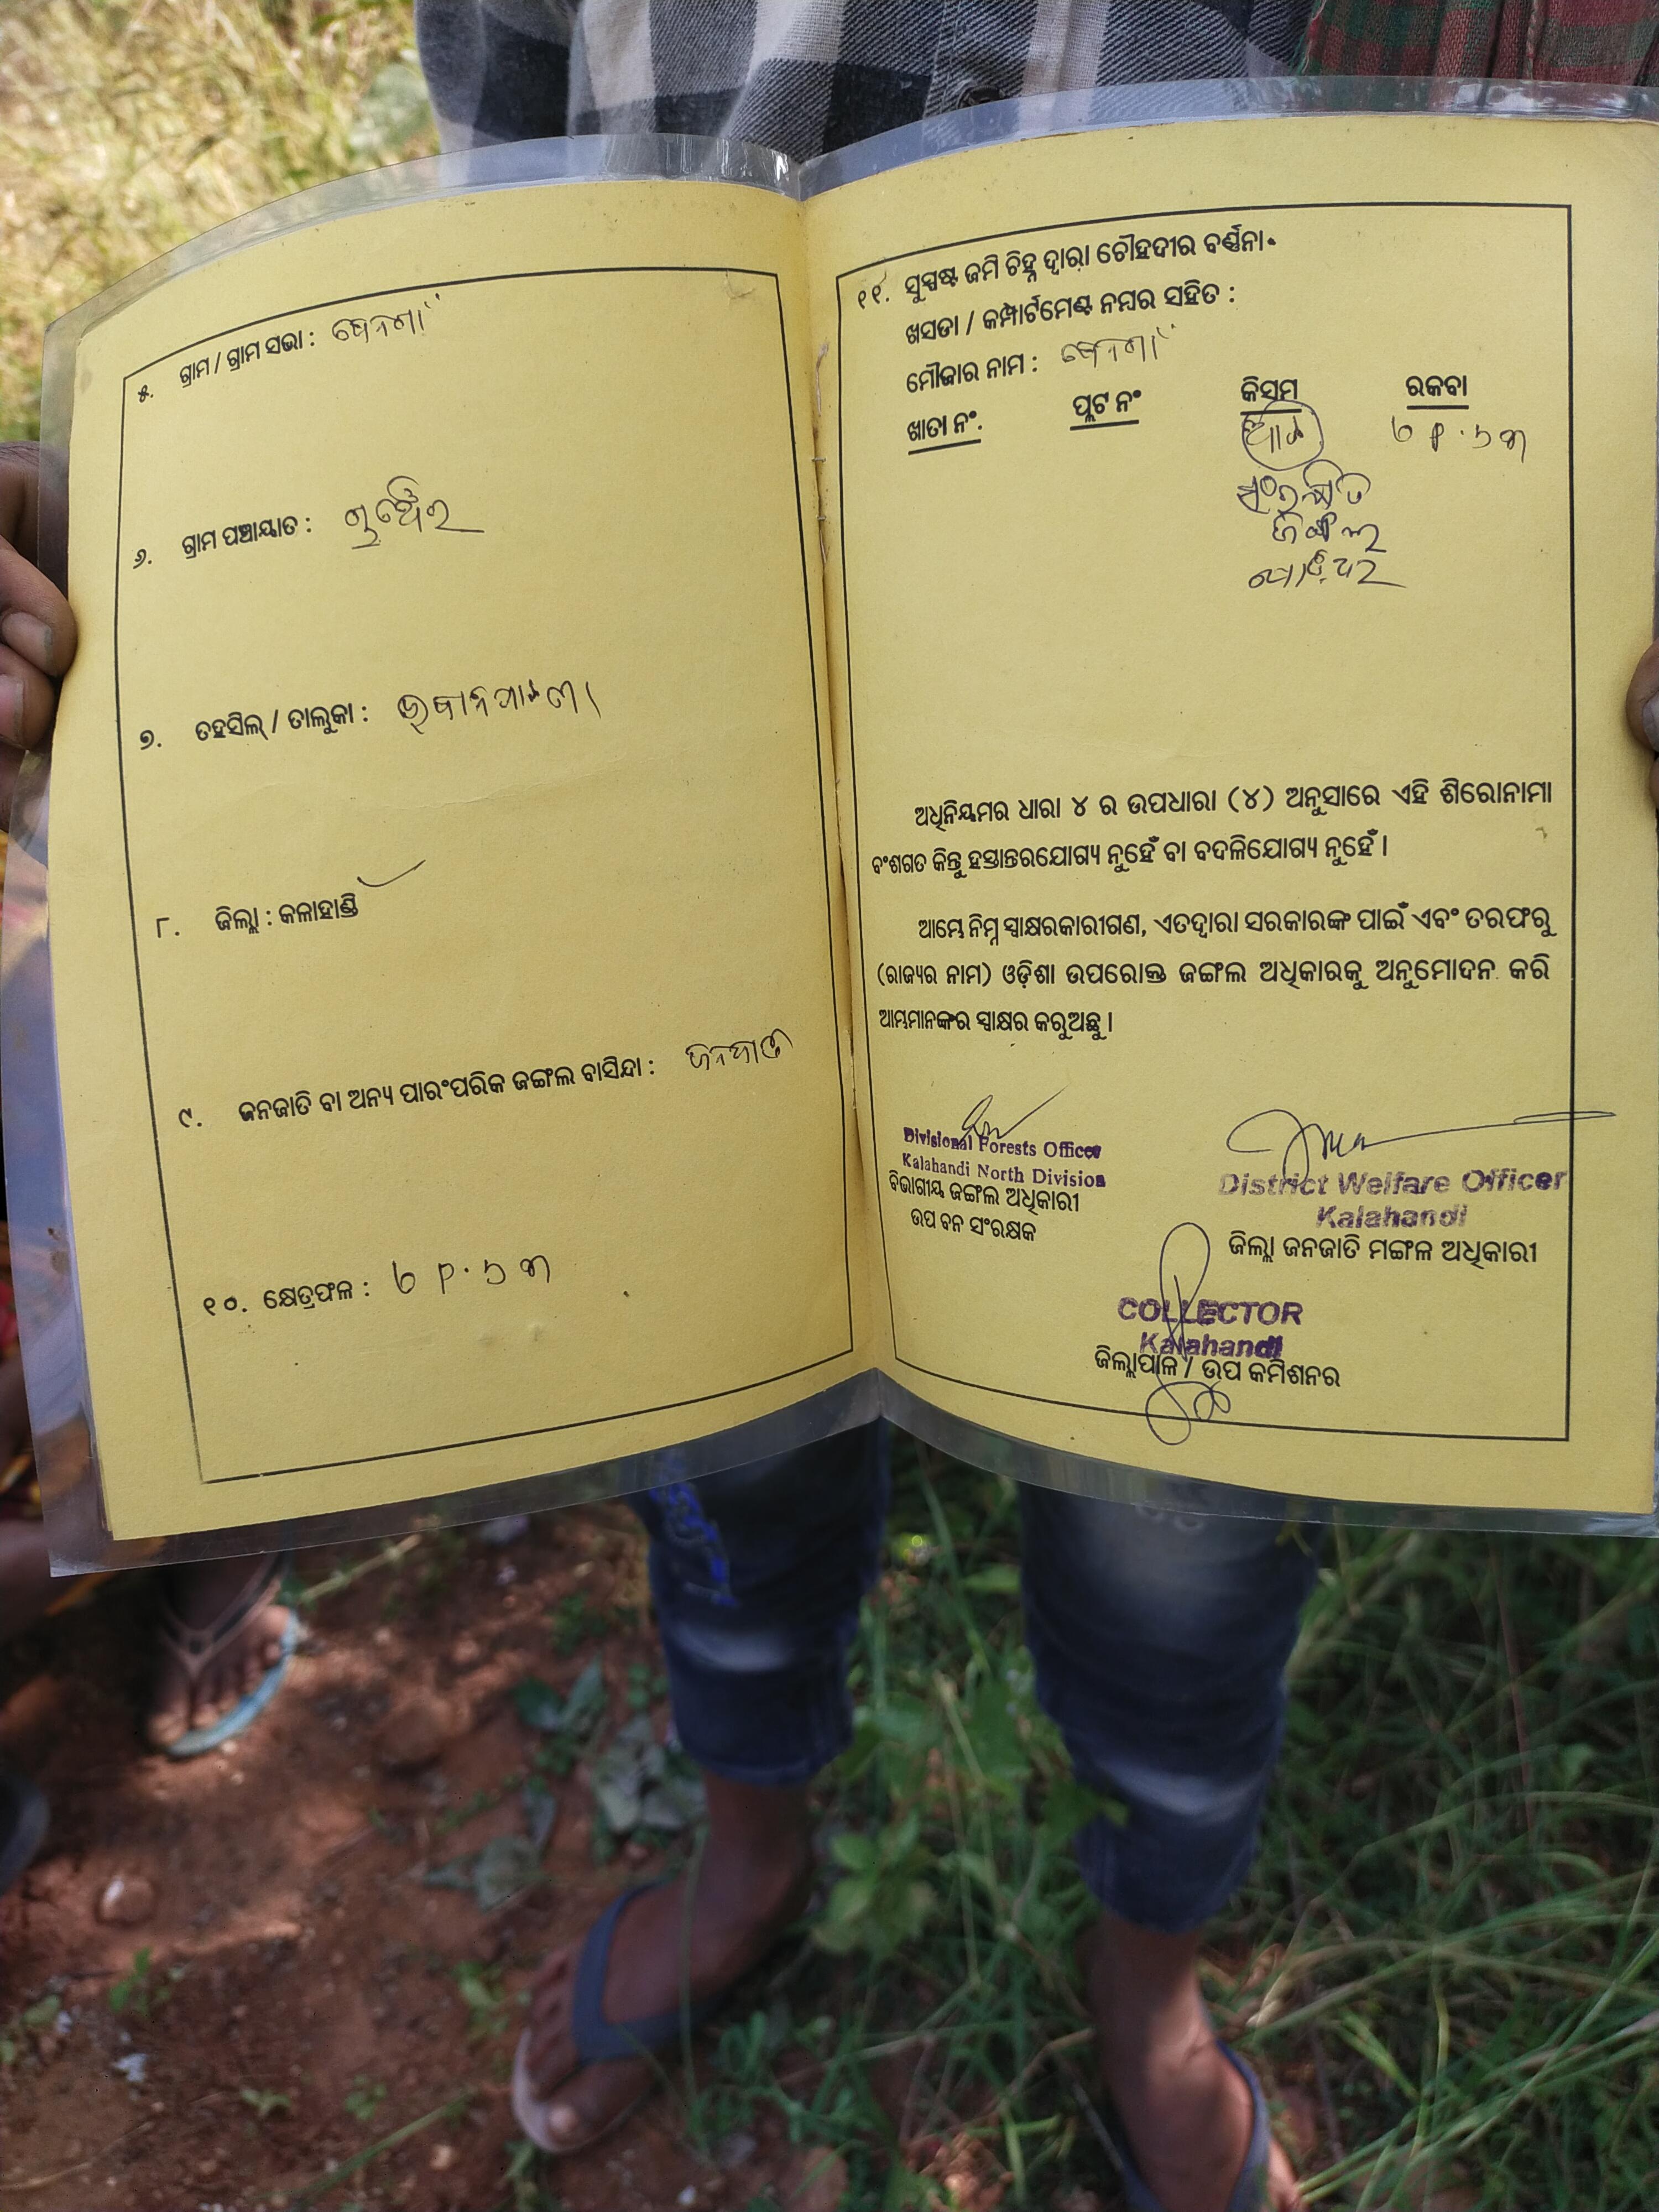 ୫. ଗ୍ରାମ / ଗ୍ରାମ ସଭା :
୬. ଗ୍ରାମ ପଞ୍ଚାୟାତ :
୭. ତହସିଲ୍ / ତାଲୁକା : ଭବାନୀପାଟଣା
୮. ଜିଲ୍ଲା : କଳାହାଣ୍ଡି
୯. ଜନଜାତି ବା ଅନ୍ୟ ପାରଂପରିକ ଜଙ୍ଗଲ ବାସିନ୍ଦା : ଜନଜାତି
୧୦. କ୍ଷେତ୍ରଫଳ :
୧୧. ସୁସ୍ପଷ୍ଟ ଜମି ଚିହ୍ନ ଦ୍ୱାରା ଚୌହଦୀର ବର୍ଣ୍ଣନା.
ଖସଡା / କମ୍ପାର୍ଟମେଣ୍ଟ ନମ୍ବର ସହିତ :
ମୌଜାର ନାମ :
ଖାତା ନଂ. ପ୍ଲଟ ନଂ କିସମ ରକବା
ସଂରକ୍ଷିତ
ଜଙ୍ଗଲ
ଅଧିନିୟମର ଧାରା ୪ ର ଉପଧାରା (୪) ଅନୁସାରେ ଏହି ଶିରୋନାମା
ବଂଶଗତ କିନ୍ତୁ ହସ୍ତାନ୍ତରଯୋଗ୍ୟ ନୁହେଁ ବା ବଦଳିଯୋଗ୍ୟ ନୁହେଁ ।
ଆମ୍ଭେ ନିମ୍ନ ସ୍ୱାକ୍ଷରକାରୀଗଣ, ଏତଦ୍ୱାରା ସରକାରଙ୍କ ପାଇଁ ଏବଂ ତରଫରୁ
(ରାଜ୍ୟର ନାମ) ଓଡ଼ିଶା ଉପରୋକ୍ତ ଜଙ୍ଗଲ ଅଧିକାରକୁ ଅନୁମୋଦନ କରି
ଆମ୍ଭମାନଙ୍କର ସ୍ୱାକ୍ଷର କରୁଅଛୁ ।
Divisional Forests Officer
Kalahandi North Division
ବିଭାଗୀୟ ଜଙ୍ଗଲ ଅଧିକାରୀ
ଉପ ବନ ସଂରକ୍ଷକ
District Welfare Officer
Kalahandi
ଜିଲ୍ଲା ଜନଜାତି ମଙ୍ଗଳ ଅଧିକାରୀ
COLLECTOR
Kalahandi
ଜିଲ୍ଲାପାଳ / ଉପ କମିଶନର